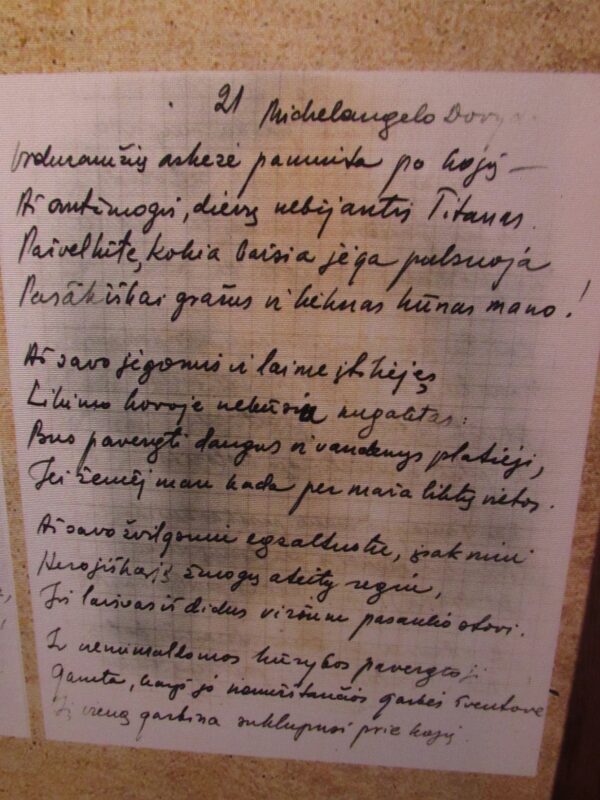 21 Michelangelo
askezė paminta po kojų —
Aš antžmogis, dievų nebijantis Titanas.
Pažvelkite, kokia baisia jėga pulsuoja
Pasakiškai gražus ir tikras kūnas mano!
Aš savo jėgomis ir laime įtikėjęs
Likimo kovoje nebūsiu nugalėtas:
Bus pavergti dangus ir vandenys platieji,
Jei žemėj man kada per maža liktų vietos.
Aš savo žvilgsniu egzaltuotu,
Herojiškąjį žmogų ateity regiu,
Jis laisvas ir didus viršum pasaulio stovi.
Ir nenumaldomos kūrybos
Gamta, kaip jo nemirštančios garbės šventovė
Jį vieną garbina suklupusi prie kojų.